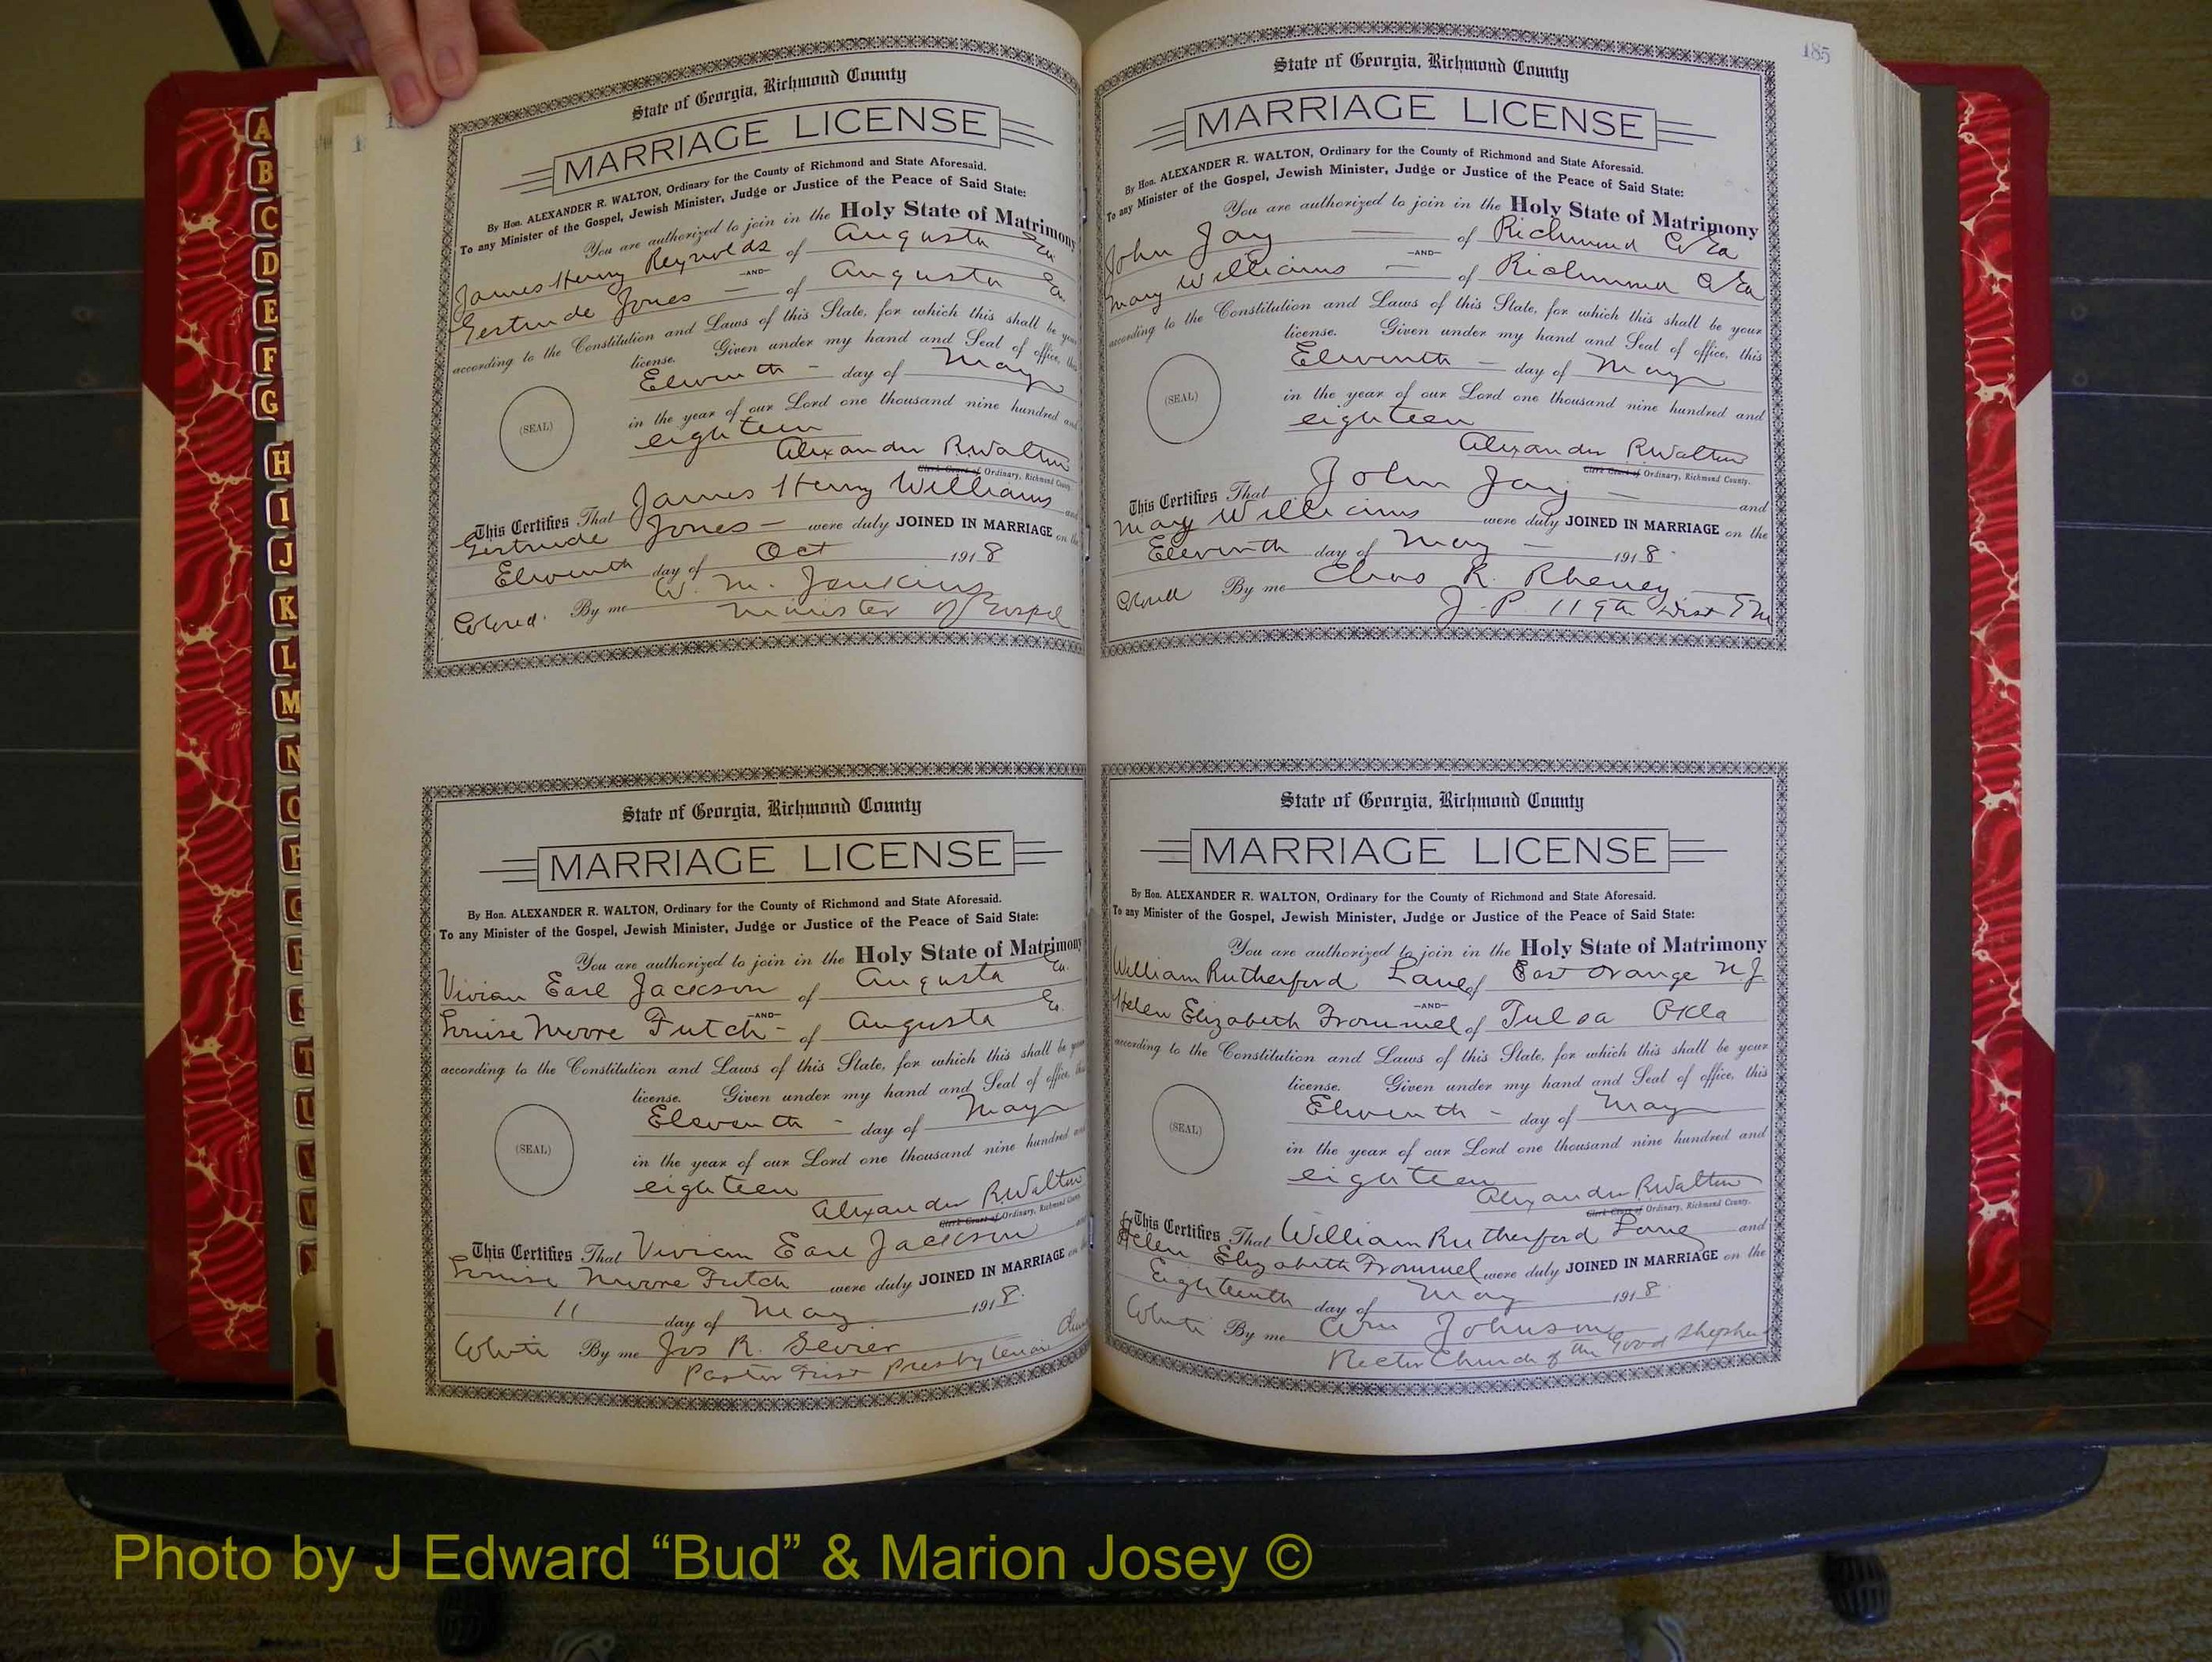 A
B
C
D
E
F
G
H
I
J
K
L
M
N
O
P
Q
R
S
T
U
State of Georgia, Richmond County
MARRIAGE LICENSE
By Hon. ALEXANDER R. WALTON, Ordinary for the County of Richmond and State Aforesaid.
To any Minister of the Gospel, Jewish Minister, Judge or Justice of the Peace of Said State:
You are authorized to join in the Holy State of Matrimony
James Henry Reynolds of Augusta Ga
—AND—
Gertrude Jones — of Augusta Ga.
according to the Constitution and Laws of this State, for which this shall be your
license. Given under my hand and Seal of office, this
Eleventh — day of May
(SEAL)
in the year of our Lord one thousand nine hundred and
eighteen
Alexander R Walton
Clerk Court of Ordinary, Richmond County.
This Certifies That James Henry Williams and
Gertrude Jones — were duly JOINED IN MARRIAGE on the
Eleventh day of Oct 1918
Colored. By me W. M. Jenkins
Minister of Gospel
State of Georgia, Richmond County
MARRIAGE LICENSE
By Hon. ALEXANDER R. WALTON, Ordinary for the County of Richmond and State Aforesaid.
To any Minister of the Gospel, Jewish Minister, Judge or Justice of the Peace of Said State:
You are authorized to join in the Holy State of Matrimony
Vivian Earl Jackson of Augusta Ga.
—AND—
Louise Moore Futch - of Augusta Ga.
according to the Constitution and Laws of this State, for which this shall be your
license. Given under my hand and Seal of office, this
Eleventh - day of May
(SEAL)
in the year of our Lord one thousand nine hundred and
eighteen
Alexander R Walton
Clerk Court of Ordinary, Richmond County.
This Certifies That Vivian Earl Jackson and
Louise Moore Futch were duly JOINED IN MARRIAGE on the
11 day of May 1918.
White By me Jos R. Sevier
Pastor First Presbyterian
185
State of Georgia, Richmond County
MARRIAGE LICENSE
By Hon. ALEXANDER R. WALTON, Ordinary for the County of Richmond and State Aforesaid.
To any Minister of the Gospel, Jewish Minister, Judge or Justice of the Peace of Said State:
You are authorized to join in the Holy State of Matrimony
John Jay — of Richmond Co Ga
—AND—
Mary Williams — of Richmond Co Ga
according to the Constitution and Laws of this State, for which this shall be your
license. Given under my hand and Seal of office, this
Eleventh — day of May
(SEAL)
in the year of our Lord one thousand nine hundred and
eighteen
Alexander R Walton
Clerk Court of Ordinary, Richmond County.
This Certifies That John Jay — and
Mary Williams were duly JOINED IN MARRIAGE on the
Eleventh day of May — 1918.
Colored By me Chas R. Rheney
J. P. 119th Dist G M
State of Georgia, Richmond County
MARRIAGE LICENSE
By Hon. ALEXANDER R. WALTON, Ordinary for the County of Richmond and State Aforesaid.
To any Minister of the Gospel, Jewish Minister, Judge or Justice of the Peace of Said State:
You are authorized to join in the Holy State of Matrimony
William Rutherford Lane of East Orange N J.
—AND—
Helen Elizabeth Frommel of Tulsa Okla
according to the Constitution and Laws of this State, for which this shall be your
license. Given under my hand and Seal of office, this
Eleventh - day of May
(SEAL)
in the year of our Lord one thousand nine hundred and
eighteen
Alexander R Walton
Clerk Court of Ordinary, Richmond County.
This Certifies That William Rutherford Lane and
Helen Elizabeth Frommel were duly JOINED IN MARRIAGE on the
Eighteenth day of May 1918.
White By me Johnson
Rector Church of the Good Shepherd
Photo by J Edward “Bud” & Marion Josey ©